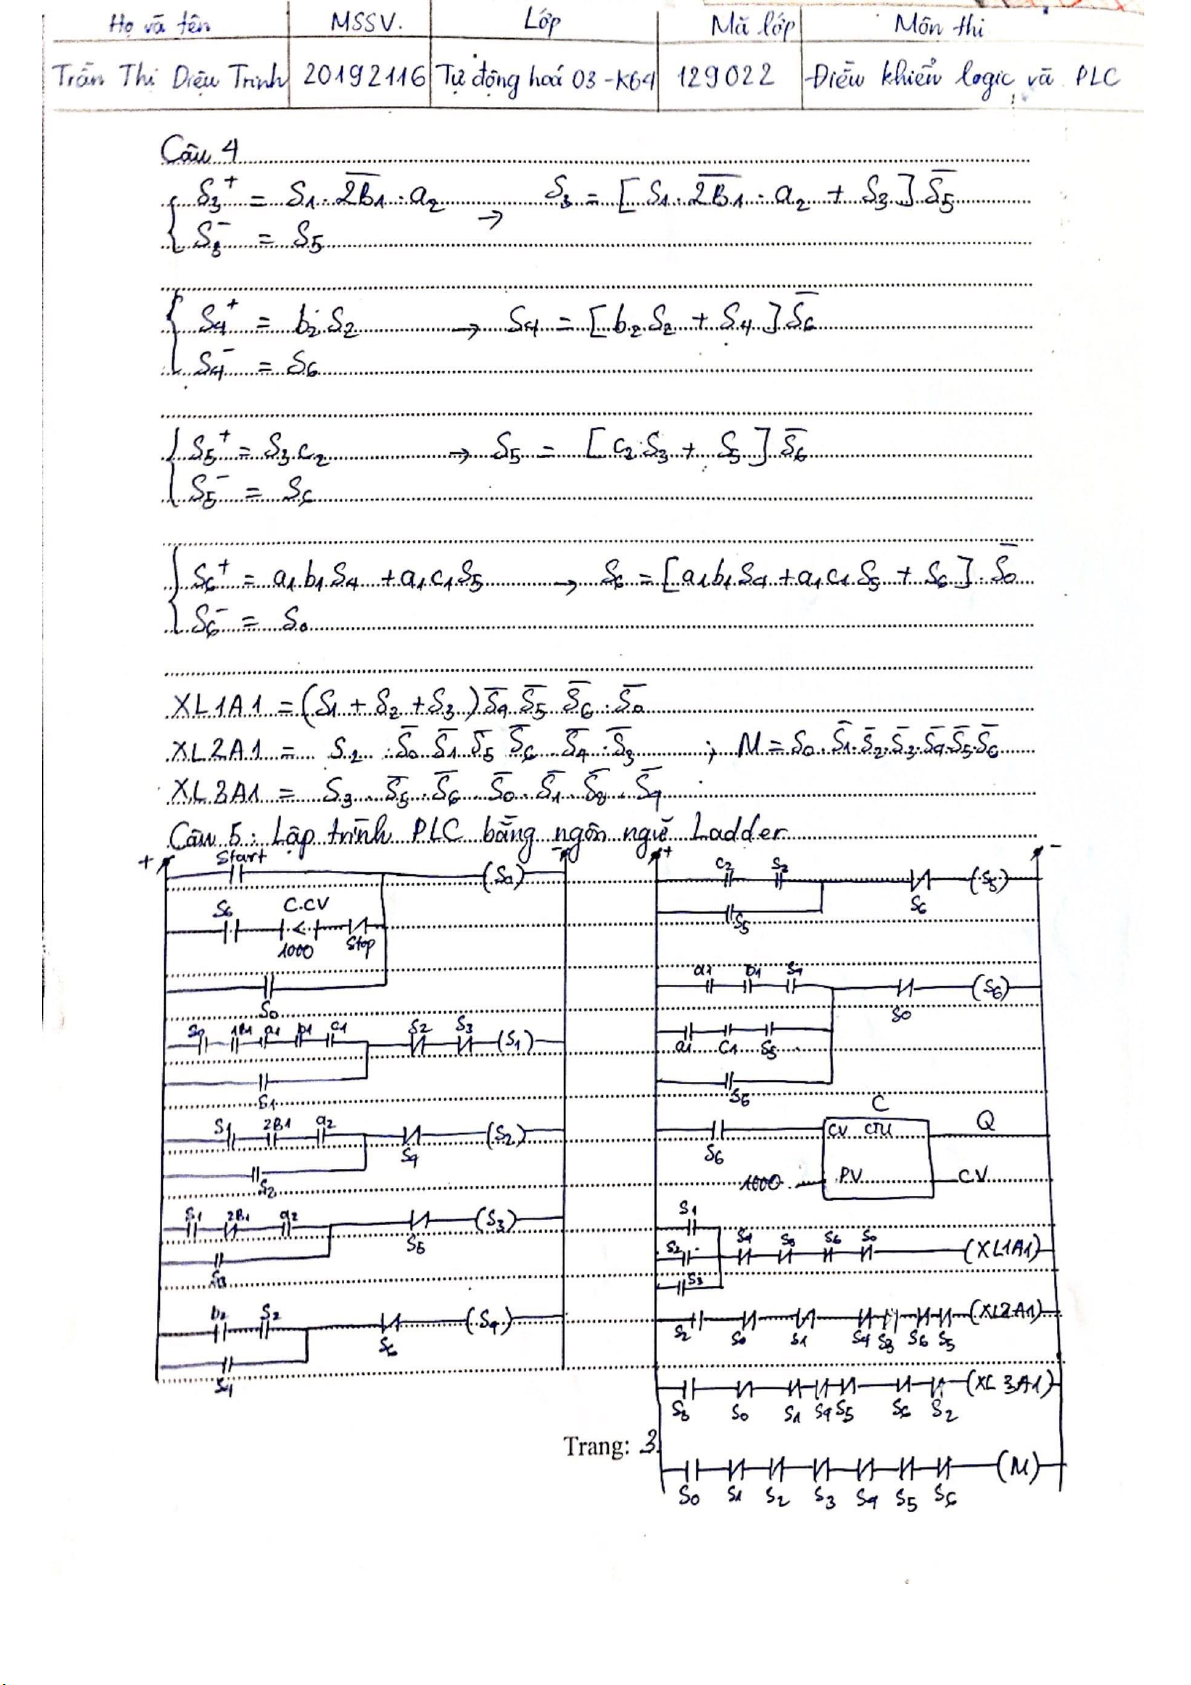 Họ và tên MSSV. Lớp Mã lớp Môn thi
Trần Thị Diệu Trinh 20192116 Tự động hoá 03-K64 129022 Điều khiển logic và PLC
Câu 4
S3⁺ = S1.2B̅1̅.a2 → S3 = [S1.2B̅1̅.a2 + S3]S̅5
S3⁻ = S5
S4⁺ = b2.S2 → S4 = [b2.S2 + S4]S̅6
S4⁻ = S6
S5⁺ = S3.c2 → S5 = [c2.S3 + S5]S̅6
S5⁻ = S6
S6⁺ = a1b1S4 + a1c1S5 → S6 = [a1b1S4 + a1c1S5 + S6].S̅0
S6⁻ = S0
XL1A1 = (S1 + S2 + S3)S̅4 S̅5 S̅6.S̅0
XL2A1 = S2.S̅0 S̅1 S̅5 S̅6 S̅4.S̅3 ; M = S0.S̅1.S̅2.S̅3.S̅4.S̅5.S̅6
XL3A1 = S3.S̅5.S̅6 S̅0.S̅1 S̅4
Câu 5: Lập trình PLC bằng ngôn ngữ Ladder
+ - + -
Start (S0)
S6 C.CV < 1000 Stop
S0
S0 1B1 a1 b1 c1 S2 S3 (S1)
S1
S1 2B1 a2 S4 (S2)
S2
S1 2B1 a2 S5 (S3)
S3
b2 S2 S6 (S4)
S4
c2 S3 S6 (S5)
S5
a1 b1 S4 S0 (S6)
a1 c1 S5
S6
C
S6 CV CTU Q
1000 PV CV
S1
S2 S4 S5 S6 S0 (XL1A1)
S3
S2 S0 S1 S4 S3 S6 S5 (XL2A1)
S3 S0 S1 S4 S5 S6 S2 (XL3A1)
S0 S1 S2 S3 S4 S5 S6 (M)
Trang: 3